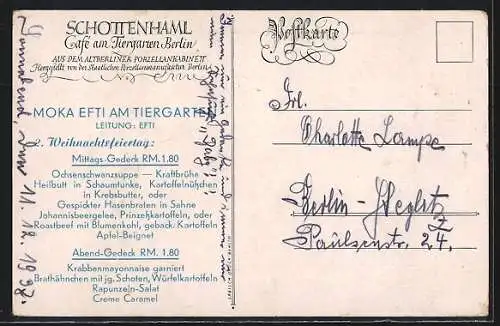 SCHOTTENHAML
Café am Tiergarten Berlin
AUS DEM ALTBERLINER PORZELLANKABINETT
Hergestellt von der Staatlichen Porzellanmanufaktur Berlin
MOKA EFTI AM TIERGARTEN
LEITUNG: EFTI
2. Weihnachtsfeiertag:
Mittags-Gedeck RM. 1.80
Ochsenschwanzsuppe — Kraftbrühe
Heilbutt in Schaumtunke, Kartoffelnüßchen
in Krebsbutter, oder
Gespickter Hasenbraten in Sahne
Johannisbeergelee, Prinzeßkartoffeln, oder
Roastbeef mit Blumenkohl, geback. Kartoffeln
Apfel-Beignet
Abend-Gedeck RM. 1.80
Krabbenmayonnaise garniert
Brathähnchen mit jg. Schoten, Würfelkartoffeln
Rapunzeln-Salat
Creme Caramel
Sonnabend, den 11. 12. 1937.
Postkarte
Frl.
Charlotte Lampe
Berlin-Steglitz
Paulsenstr. 24,